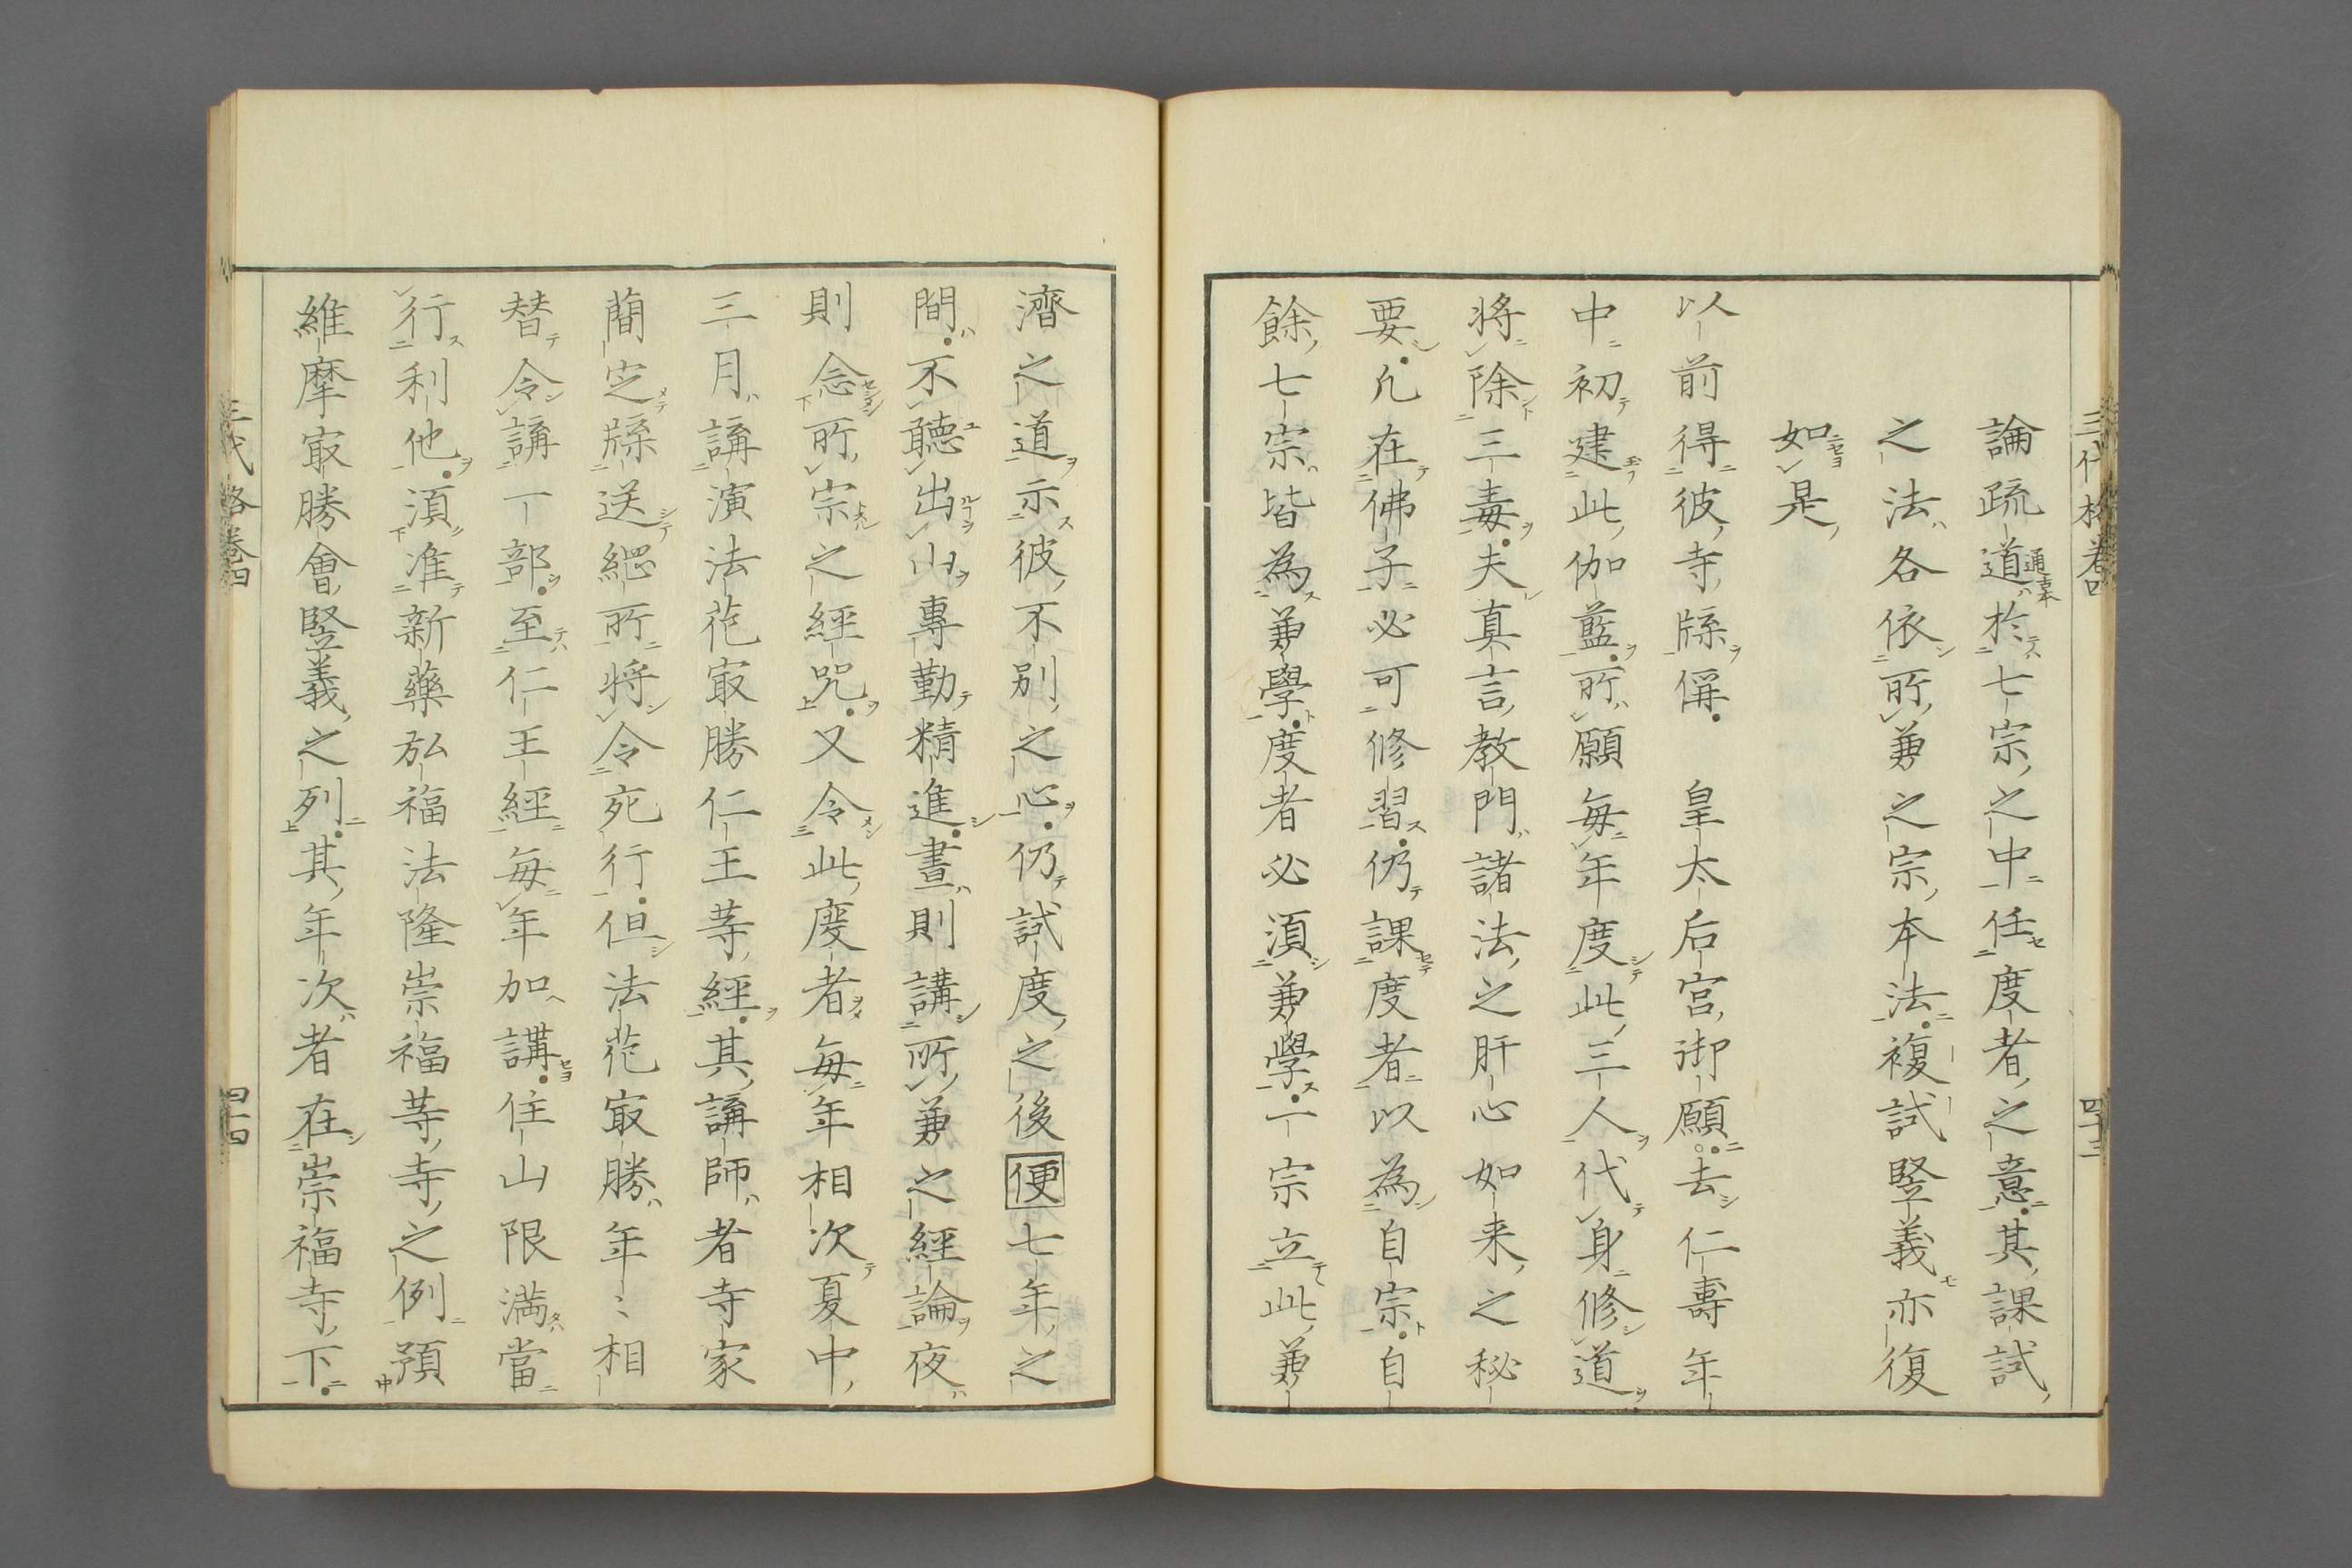 論疏道於七宗之中任度者之意其課試
之法各依所兼之宗本法複試竪義亦復
如是
以前得彼寺牒偁 皇太后宮御願去仁壽年
中初建此伽藍所願毎年度此三人代身修道
将除三毒夫真言教門諸法之肝心如来之秘
要凢在佛子必可修習仍課度者以為自宗自
餘七宗皆為兼學度者必須兼學一宗立此兼
濟之道示彼不別之心仍試度之後便七年之
間不聴出山專勤精進晝則講所兼之經論夜
則念所宗之經咒又令此度者毎年相次夏中
三月講演法花冣勝仁王等經其講師者寺家
蕳定牒送綱所将令宛行但法花冣勝年〻相
替令講一部至仁王經毎年加講住山限満當
行利他須准新藥弘福法隆崇福等寺之例預
維摩冣勝會竪義之列其年次者在崇福寺下